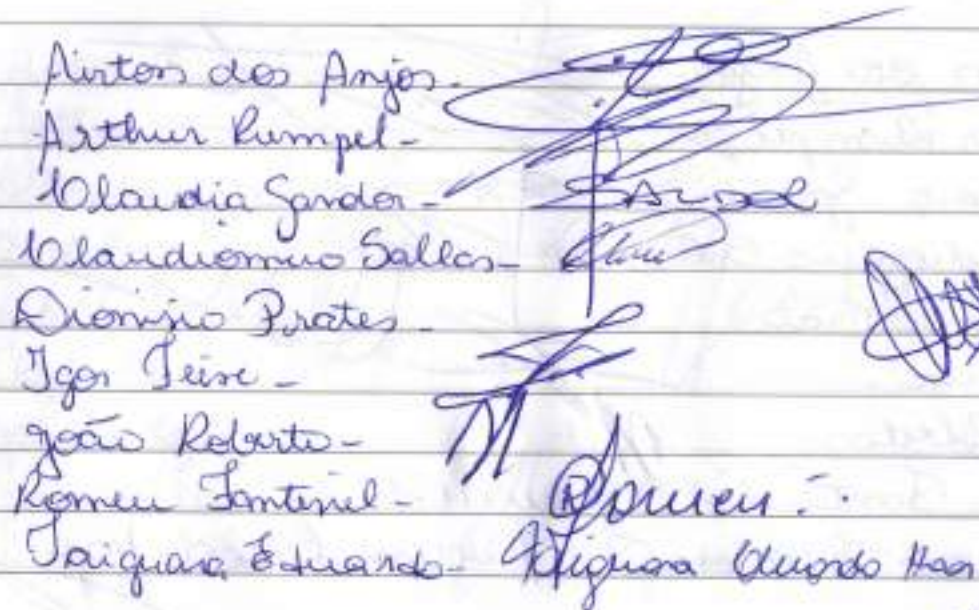 Airton dos Anjos -
Arthur Rumpel -
Claudia Sandor - SANDOR
Claudiomiro Sallas -
Dionisio Prates -
Igor
João Roberto -
Romeu - Romeu
Taiguara Eduardo - Taiguara Eduardo